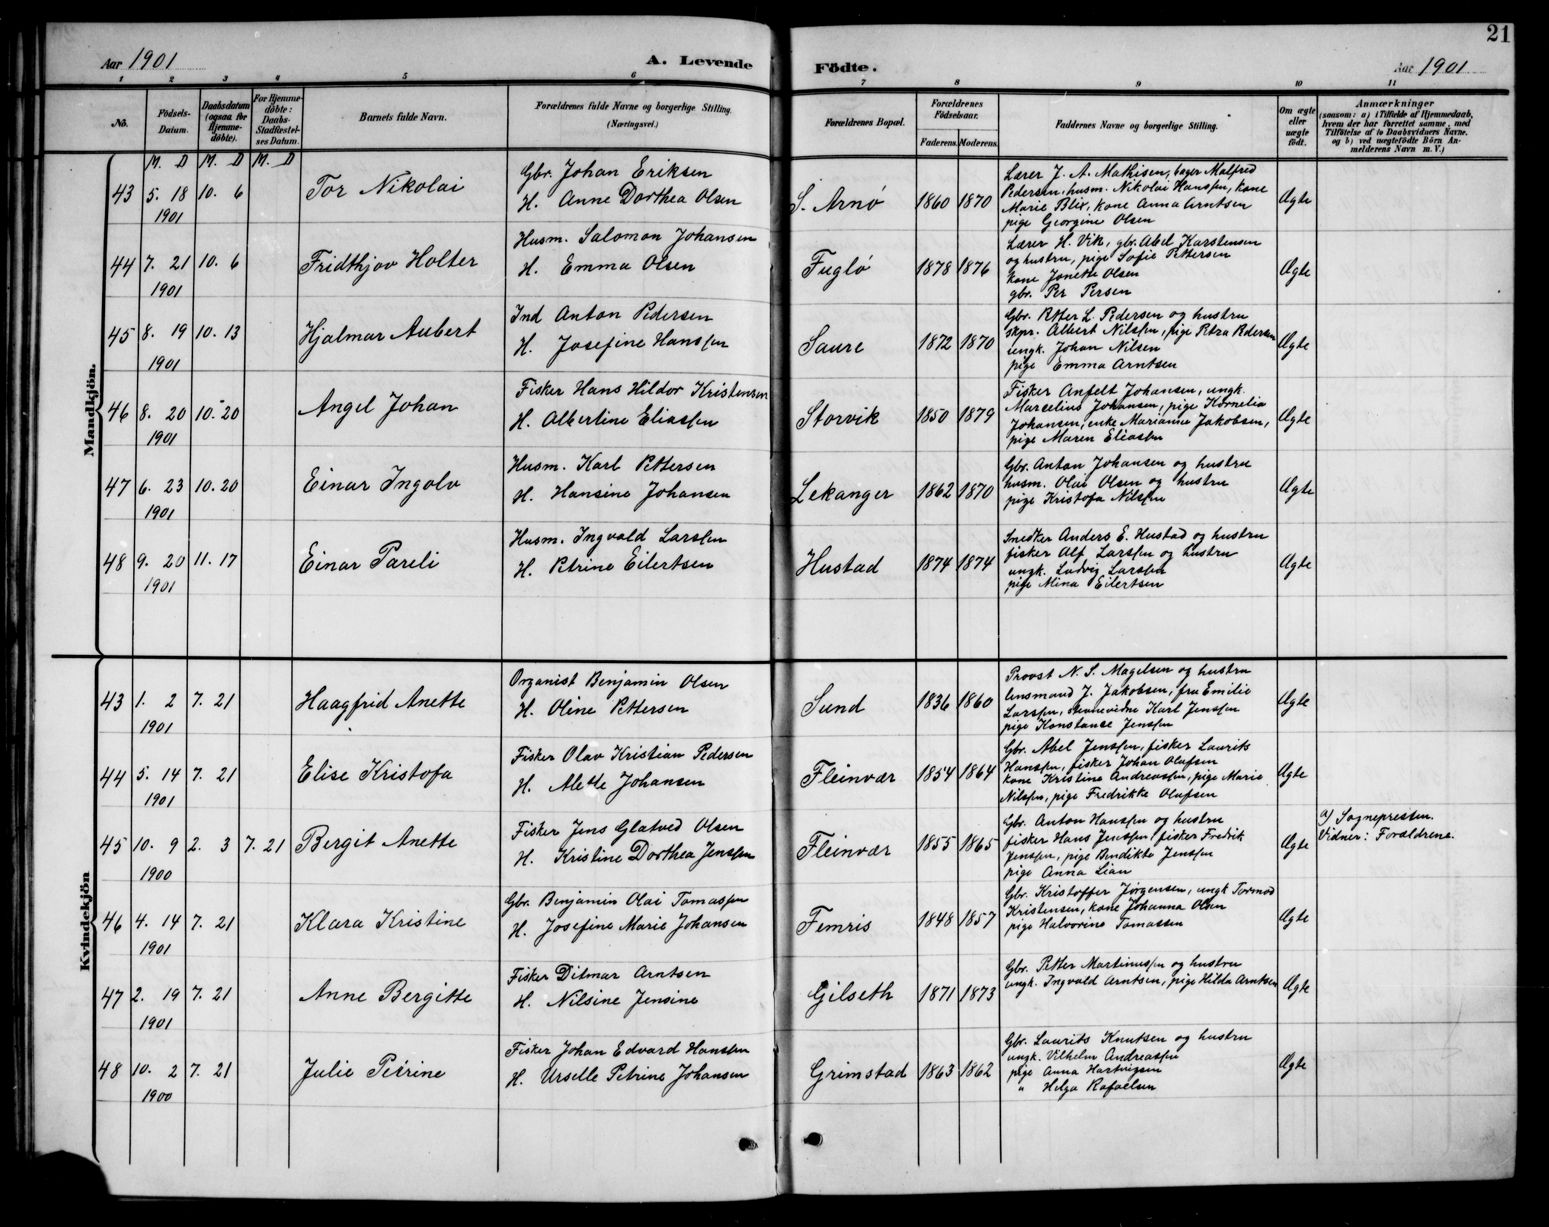 21
Aar 1901
A. Levende
Födte.
Aar 1901
1 2 3 4 5 6 7 8 9 10 11
No.
Födsels-Datum.
Daabsdatum (ogsaa for Hjemme-döbte).
For Hjemme-döbte: Daabs-Stadfæstel-ses Datum.
Barnets fulde Navn.
Forældrenes fulde Navne og borgerlige Stilling.
(Næringsvei.)
Forældrenes Bopæl.
Forældrenes Födselsaar.
Faderens. Moderens.
Faddernes Navne og borgerlige Stilling.
Om ægte eller uægte födt.
Anmærkninger
(saasom: a) i Tilfælde af Hjemmedaab, hvem der har forrettet samme, med Tilföielse af to Daabsvidners Navne. og b) ved uægtefödte Börn An-melderens Navn m. V.)
Mandkjön.
M. D M. D M. D
43 5. 18 1901 10. 6 Tor Nikolai
Gbr. Johan Eriksen
H. Anne Dorthea Olsen
S. Arnø 1860 1870
Lærer J. A. Mathisen, bager Malfred
Pedersen, husm. Nikolai Hanssen, kone
Marie Blix, kone Anna Arntsen
pige Georgine Olsen
Ægte
44 7. 21 1901 10. 6 Fridthjov Holter
Husm. Salomon Johansen
H. Emma Olsen
Fuglø 1878 1876
Lærer H. Vik, gbr. Abel Karstensen
og hustru, pige Sofie Pettersen
kone Jonette Olsen
gbr. Per Persen
Ægte
45 8. 19 1901 10. 13 Hjalmar Aubert
Ind Anton Pedersen
H. Josefine Hanssen
Saure 1872 1870
Gbr. Petter L. Pedersen og hustru
skpr. Albert Nilssen, pige Petra Pedersen
ungk. Johan Nilsen
pige Emma Arntsen
Ægte
46 8. 20 1901 10. 20 Angel Johan
Fisker Hans Hildor Kristensen
H. Albertine Eliassen
Storvik 1850 1879
Fisker Anfelt Johansen, ungk.
Marcelius Johansen, pige Kornelia
Johansen, enke Marianne Jakobsen,
pige Maren Eliassen
Ægte
47 6. 23 1901 10. 20 Einar Ingolv
Husm. Karl Pettersen
H. Hansine Johansen
Lekanger 1862 1870
Gbr. Anton Johansen og hustru
husm. Olai Olsen og hustru
pige Kristofa Nilssen
Ægte
48 9. 20 1901 11. 17 Einar Pareli
Husm. Ingvald Larssen
H. Petrine Eilertsen
Hustad 1874 1874
Snedker Anders E. Hustad og hustru
fisker Alf Larssen og hustru
ungk. Ludvig Larssen
pige Mina Eilertsen
Ægte
Kvindekjön
43 1. 2 1901 7. 21 Haagfrid Anette
Organist Benjamin Olsen
H. Oline Pettersen
Sund 1836 1860
Provst N. S. Magelsen og hustru
lensmand J. Jakobsen, fru Emilie
Larssen, stevnevidne Karl Jenssen
pige Konstanse Jenssen
Ægte
44 5. 14 1901 7. 21 Elise Kristofa
Fisker Olav Kristian Pedersen
H. Alette Johansen
Fleinvær 1854 1864
Gbr. Abel Jenssen, fisker Laurits
Hanssen, fisker Johan Olufsen
kone Kristine Andreassen, pige Marie
Nilssen, pige Fredrikke Olufsen
Ægte
45 10. 9 1900 2. 3 7. 21 Bergit Anette
Fisker Jens Glatved Olsen
H. Kristine Dorthea Jenssen
Fleinvær 1855 1865
Gbr. Anton Hanssen og hustru
fisker Hans Jenssen, fisker Fredrik
Jenssen, pige Bendikte Jenssen
pige Anna Lian
Ægte
a) Sognepresten.
Vidner: Forældrene.
46 4. 14 1901 7. 21 Klara Kristine
Gbr. Benjamin Olai Tomassen
H. Josefine Marie Johansen
Femris 1848 1857
Gbr. Kristoffer Jørgensen, ungk Tormod
Kristensen, kone Johanna Olsen
pige Halvorine Tomassen
Ægte
47 2. 19 1901 7. 21 Anne Bergitte
Fisker Ditmar Arntsen
H. Nilsine Jensine
Gilseth 1871 1873
Gbr. Petter Martinussen og hustru
ungk. Ingvald Arntsen, pige Hilda Arntsen
Ægte
48 10. 2 1900 7. 21 Julie Petrine
Fisker Johan Edvard Hanssen
H. Urselle Petrine Johansen
Grimstad 1863 1862
Gbr. Laurits Knutsen og hustru
ungk. Vilhelm Andreassen
pige Anna Hartvigsen
" Helga Rafaelsen
Ægte